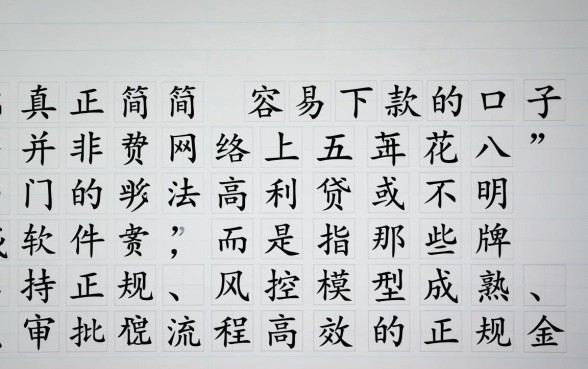 真正简简 容易下款的口子
并非费网络上五年花八”
门的法高利贷或不明
软件”，而是指那些牌
持正规、风控模型成熟、
审批流程高效的正规金